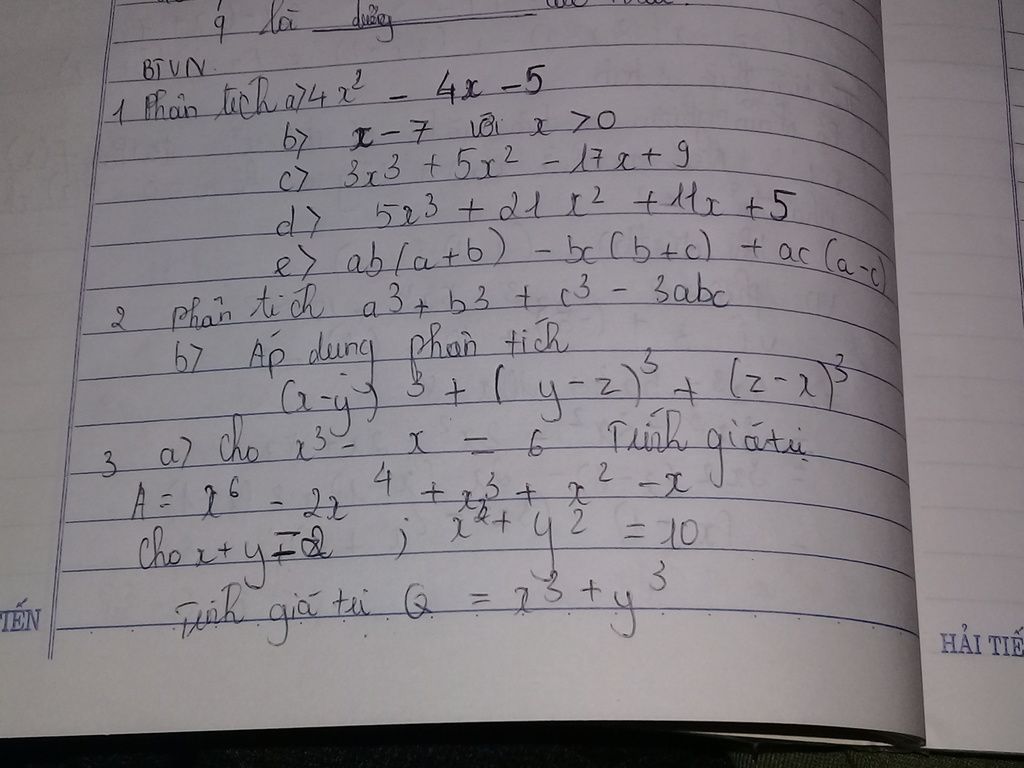 9 là dương
BTVN.
1 Phân tích a> 4x² - 4x - 5
b> x - 7 với x > 0
c> 3x³ + 5x² - 17x + 9
d> 5x³ + 21x² + 11x + 5
e> ab(a+b) - bc(b+c) + ac(a-c)
2 phân tích a³ + b³ + c³ - 3abc
b> Áp dụng phân tích
(x-y)³ + (y-z)³ + (z-x)³
3 a) cho x³ - x = 6 Tính giá trị
A = x⁶ - 2x⁴ + x³ + x² - x
cho x + y = 2 ; x² + y² = 10
Tính giá trị Q = x³ + y³
TIẾN
HẢI TIẾ